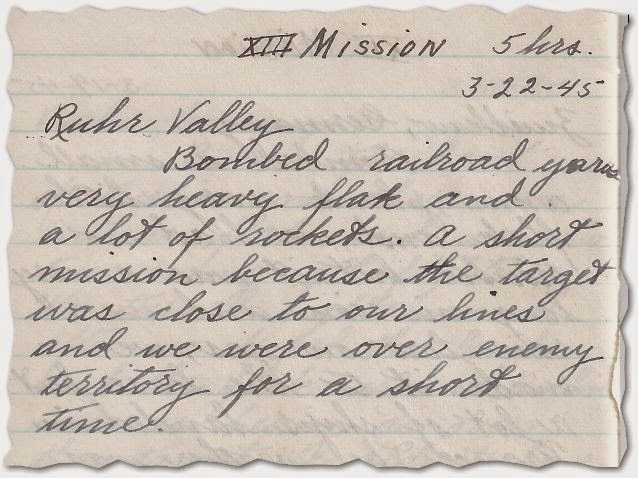 XIII Mission 5 hrs.
3-22-45
Ruhr Valley
Bombed railroad yards
very heavy flak and
a lot of rockets. A short
mission because the target
was close to our lines
and we were over enemy
territory for a short
time.